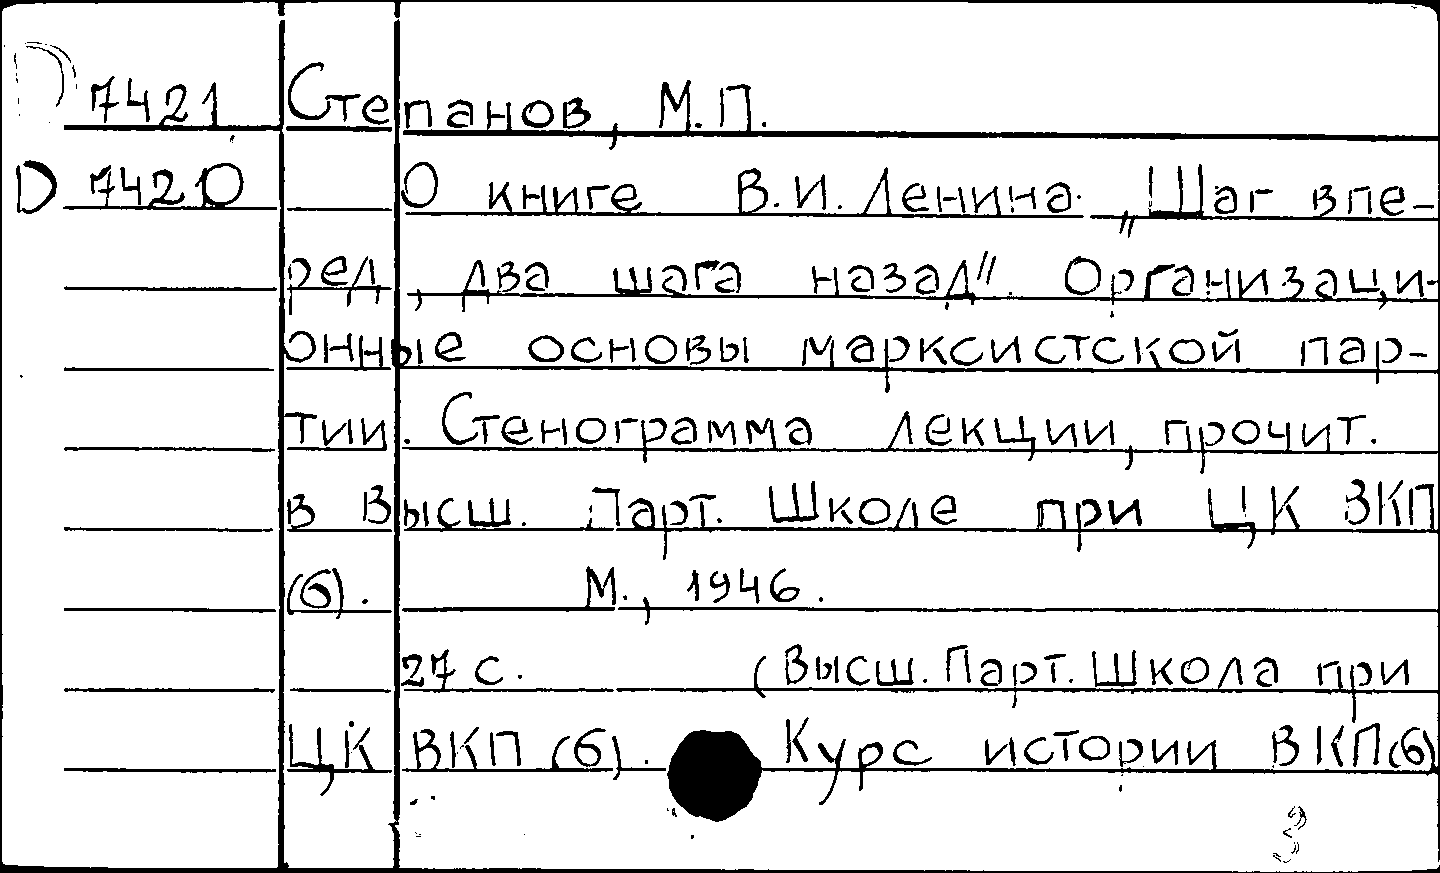 D 7421 Степанов, М.П.
D 7420 О книге В.И. Ленина „Шаг впе-
ред, два шага назад". Организаци-
онные основы марксистской пар-
тии. Стенограмма лекции, прочит.
в Высш. Парт. Школе при ЦК ВКП
(б). М., 1946.
27 с. (Высш. Парт. Школа при
ЦК ВКП (б). Курс истории ВКП(б)
3